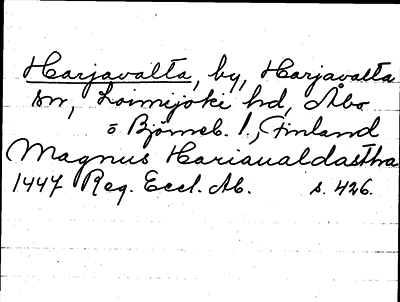 Harjavalta, by, Harjavalta
sn, Loimijoki hd, Åbo
o Björneb. l., Finland
Magnus Hariaualdastha
1447 Reg. Eccl. Ab. s. 426.